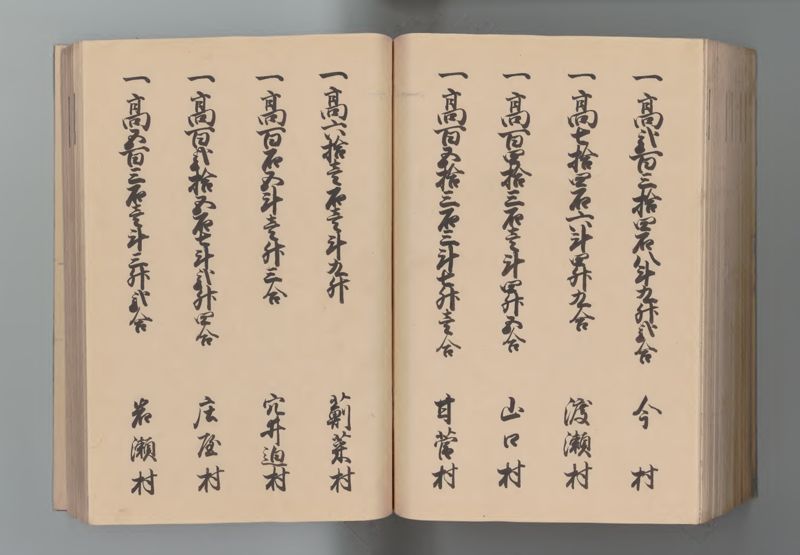 一高弐百三拾四石八斗九升弐合 今村
一高七拾四石六斗四升九合 渡瀬村
一高百四拾三石壱斗四升五合 山口村
一高百五拾三石三斗七升壱合 甘菅村
一高六拾壱石壱斗九升 薊菜村
一高百石五斗壱升三合 穴井迫村
一高百弐拾五石七斗弐升四合 庄屋村
一高五百三石壱斗三升弐合 岩瀬村